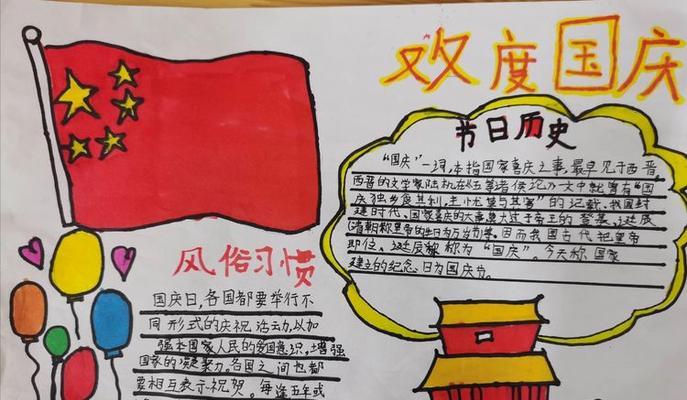 欢度国庆
节日历史
“国庆”一词,本指国家喜庆之事,最早见于西晋。
西晋的文学家陆机在《五等诸侯论》一文中就曾有“国
庆独乡食其利,主忧莫与其害”的记载、我国封
建时代、国家喜庆的大事莫大过于帝王的登基、诞辰
(清朝称皇帝的生日为万岁节)。因而我国古代把皇帝
即位、诞辰称为“国庆”。今天称国家
建立的纪念日为国庆节
风俗习惯
国庆日,各国都要举行不
同形式的庆祝活动,以加
强本国家人民的爱国意识,增强
国家的凝聚力。各国之间也都
要相互表示祝贺。每逢五年或